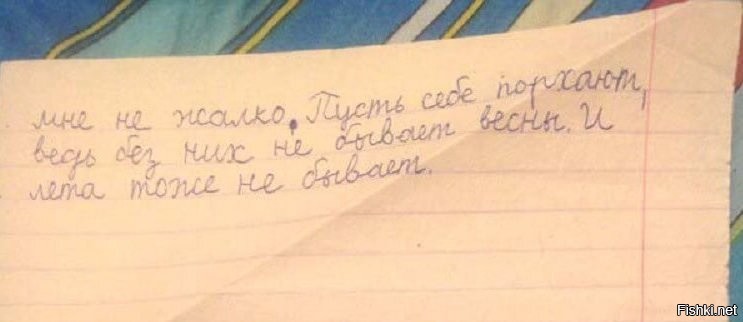 мне не жалко. Пусть себе порхают,
ведь без них не бывает весны. И
лета тоже не бывает.
Fishki.net